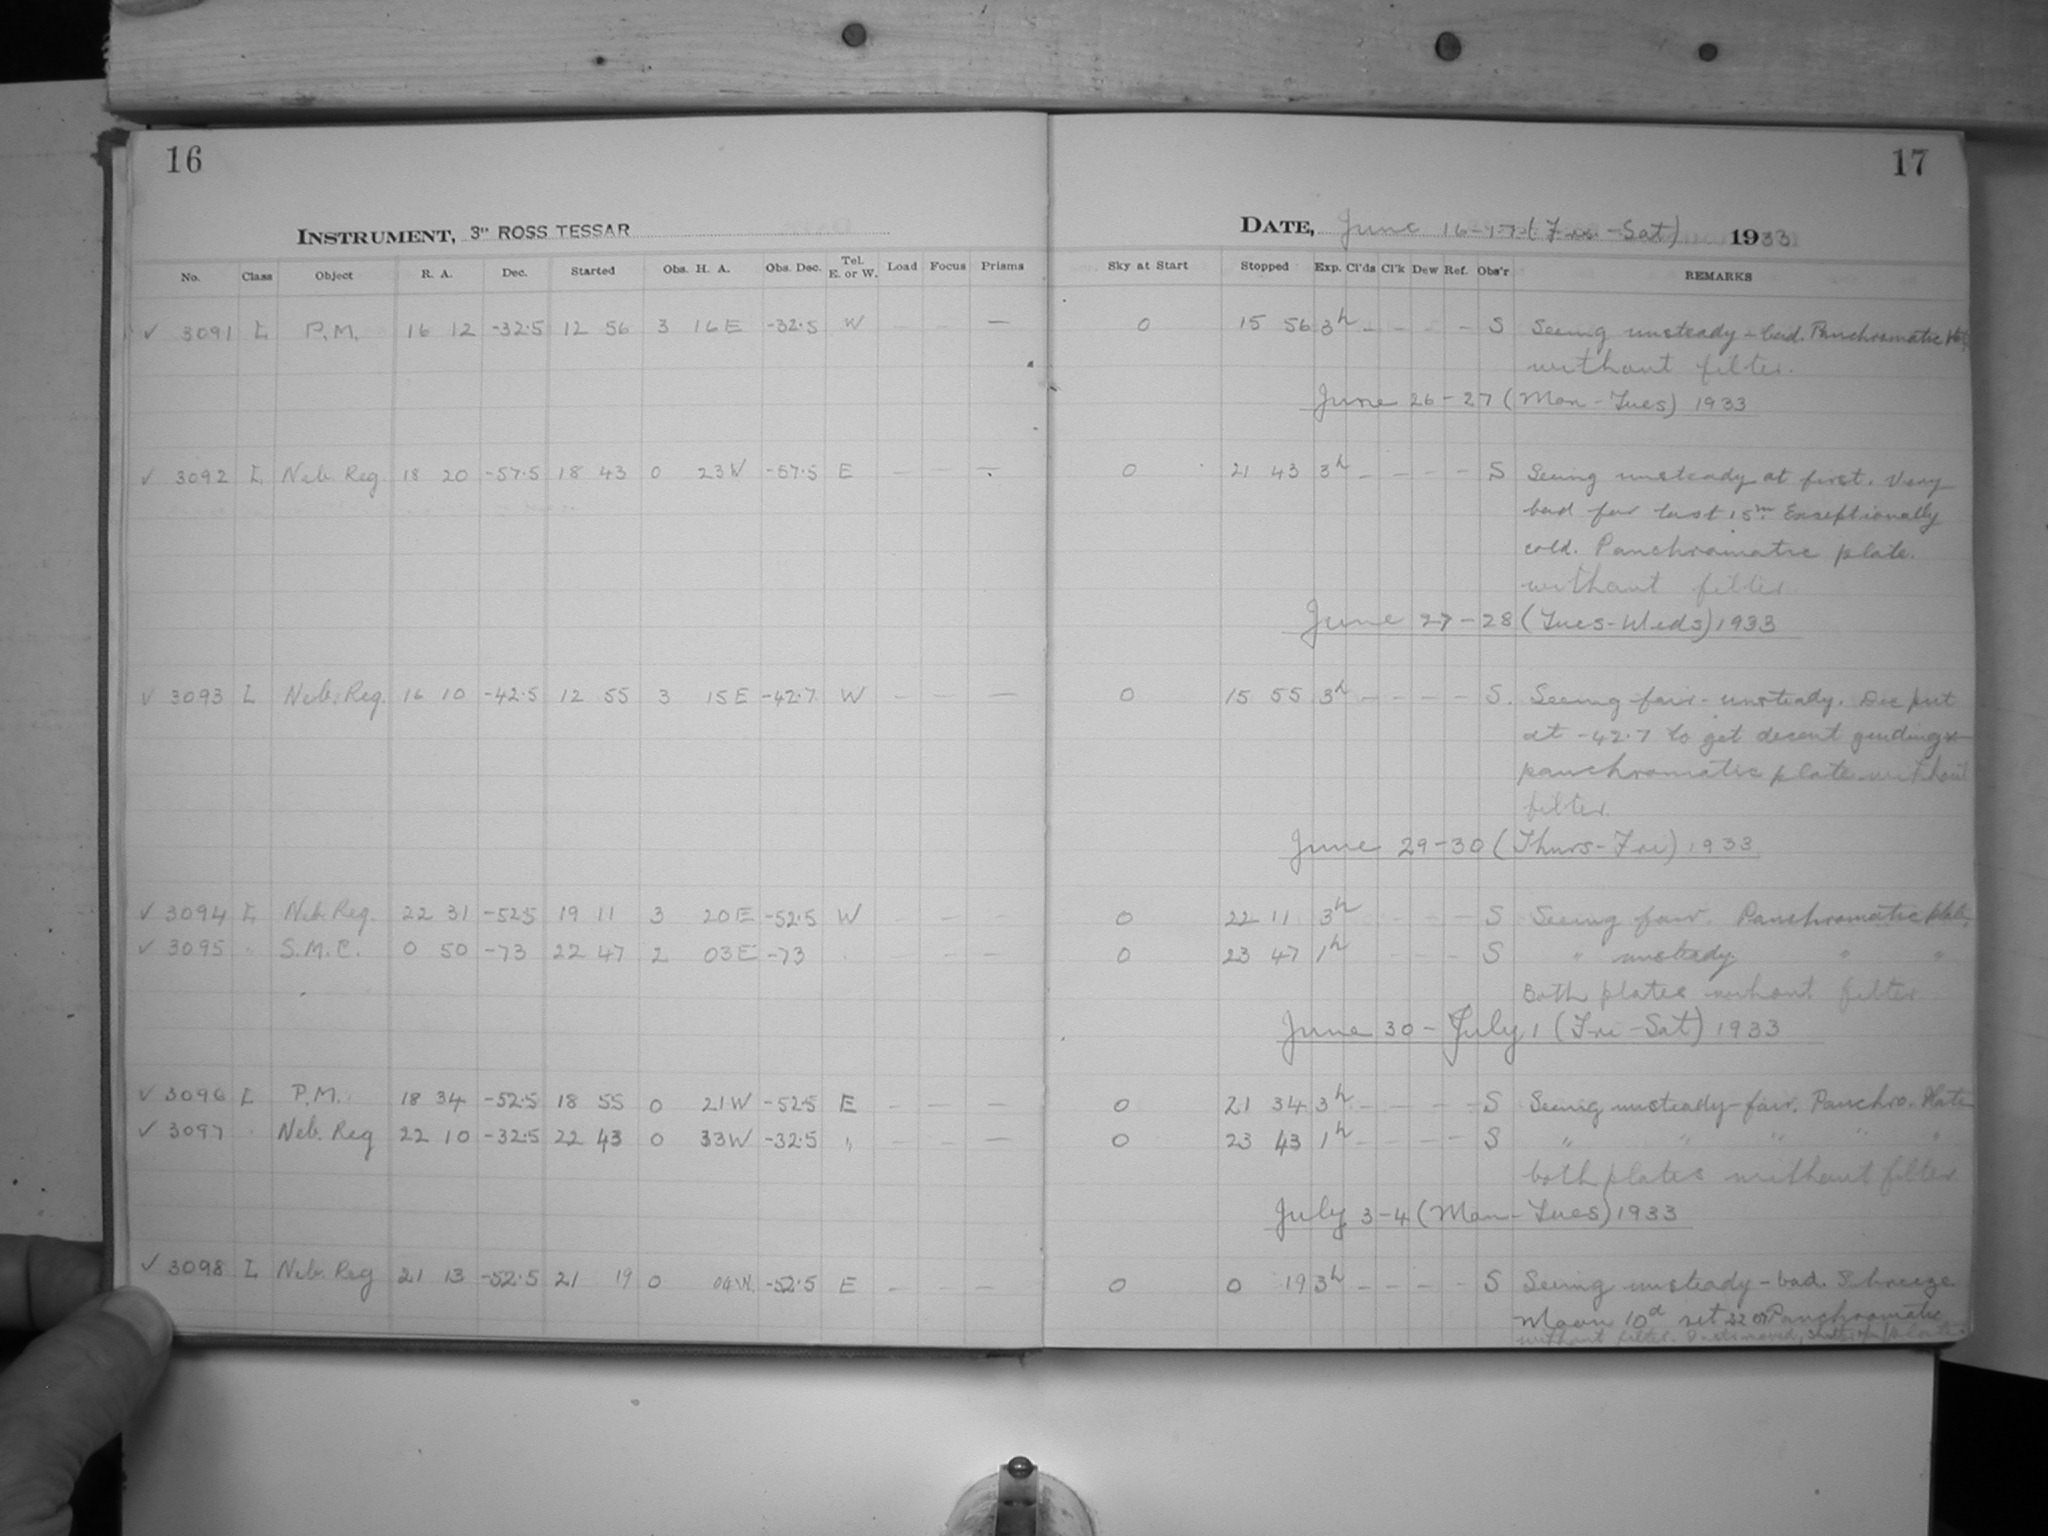 16
INSTRUMENT, 3" ROSS TESSAR
No. Class Object R. A. Dec. Started Obs. H. A. Obs. Dec. Tel. E. or W. Load Focus Prisms
✓ 3091 L P.M. 16 12 -32.5 12 56 3 16 E -32.5 W — — —
✓ 3092 L Neb. Reg. 18 20 -57.5 18 43 0 23 W -57.5 E — — —
✓ 3093 L Neb. Reg. 16 10 -42.5 12 55 3 15 E -42.7 W — — —
✓ 3094 L Neb. Reg. 22 31 -52.5 19 11 3 20 E -52.5 W — — —
✓ 3095 " S.M.C. 0 50 -73 22 47 2 03 E -73 " — — —
✓ 3096 L P.M. 18 34 -52.5 18 55 0 21 W -52.5 E — — —
✓ 3097 " Neb. Reg 22 10 -32.5 22 43 0 33 W -32.5 " — — —
✓ 3098 L Neb. Reg 21 13 -52.5 21 19 0 04 W. -52.5 E — — —
17
DATE, June 16-17 (Fri-Sat) 1933
Sky at Start Stopped Exp. Cl'ds Cl'k Dew Ref. Obs'r REMARKS
0 15 56 3h - - - - S Seeing unsteady - bad. Panchromatic
without filter.
June 26-27 (Mon-Tues) 1933
0 21 43 3h - - - - S Seeing unsteady at first. Very
bad for last 15m. Exceptionally
cold. Panchromatic plate.
without filter.
June 27-28 (Tues-Weds) 1933
0 15 55 3h - - - - S. Seeing fair - unsteady. Dec put
at -42.7 to get decent guiding
panchromatic plate without
filter.
June 29-30 (Thurs-Fri) 1933
0 22 11 3h - - - - S Seeing fair. Panchromatic plate,
0 23 47 1h - - - - S " unsteady. " "
Both plates without filter
June 30 - July 1 (Fri-Sat) 1933
0 21 34 3h - - - - S Seeing unsteady-fair. Panchro. Plate
0 23 43 1h - - - - S " " " " "
both plates without filter
July 3-4 (Mon-Tues) 1933
0 0 19 3h - - - - S Seeing unsteady - bad. S breeze
Moon 10d set Panchromatic
without filter.